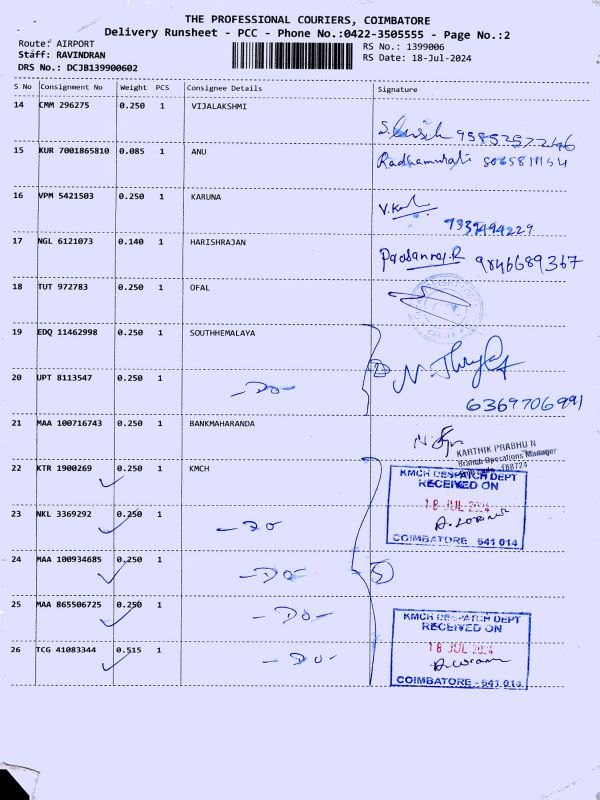 THE PROFESSIONAL COURIERS, COIMBATORE
Delivery Runsheet - PCC - Phone No.:0422-3505555 - Page No.:2
Route: AIRPORT
RS No.: 1399006
Staff: RAVINDRAN
RS Date: 18-Jul-2024
DRS No.: DCJB139900602
S No Consignment No Weight PCS Consignee Details Signature
14 CMM 296275 0.250 1 VIJALAKSHMI
15 KUR 7001865810 0.085 1 ANU
16 VPM 5421503 0.250 1 KARUNA
V.
17 NGL 6121073 0.140 1 HARISHRAJAN
9846689367
18 TUT 972783 0.250 1 OFAL
19 EDQ 11462998 0.250 1 SOUTHHEMALAYA
20 UPT 8113547 0.250 1
-Do-
6369706991
21 MAA 100716743 0.250 1 BANKMAHARANDA
KARTHIK PRABHU N
Branch Operations Manager
188724
22 KTR 1900269 0.250 1 KMCH
KMCH DESPATCH DEPT
RECEIVED ON
18 JUL 2024
COIMBATORE 641 014
23 NKL 3369292 0.250 1
-Do-
24 MAA 100934685 0.250 1
-Do- 5
25 MAA 865506725 0.250 1
-Do-
KMCH DESPATCH DEPT
RECEIVED ON
26 TCG 41083344 0.515 1
-Do-
18 JUL 2024
COIMBATORE - 641 014